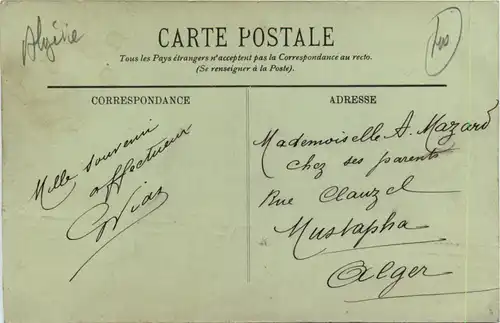 Algérie
CARTE POSTALE
Tous les Pays étrangers n'acceptent pas la Correspondance au recto.
(Se renseigner à la Poste).
CORRESPONDANCE
Mille souvenir
affectueux
ADRESSE
Mademoiselle A. Mazard
Chez ses parents
Rue Clauzel
Mustapha
Alger